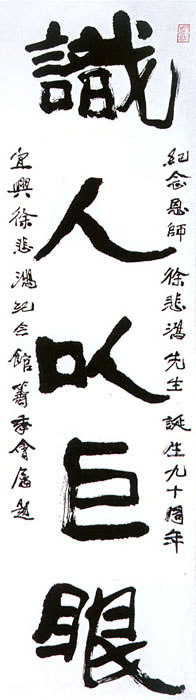 紀念恩師 徐悲鴻先生 誕生九十周年
識人以巨眼
宜興徐悲鴻紀念館籌委會屬題